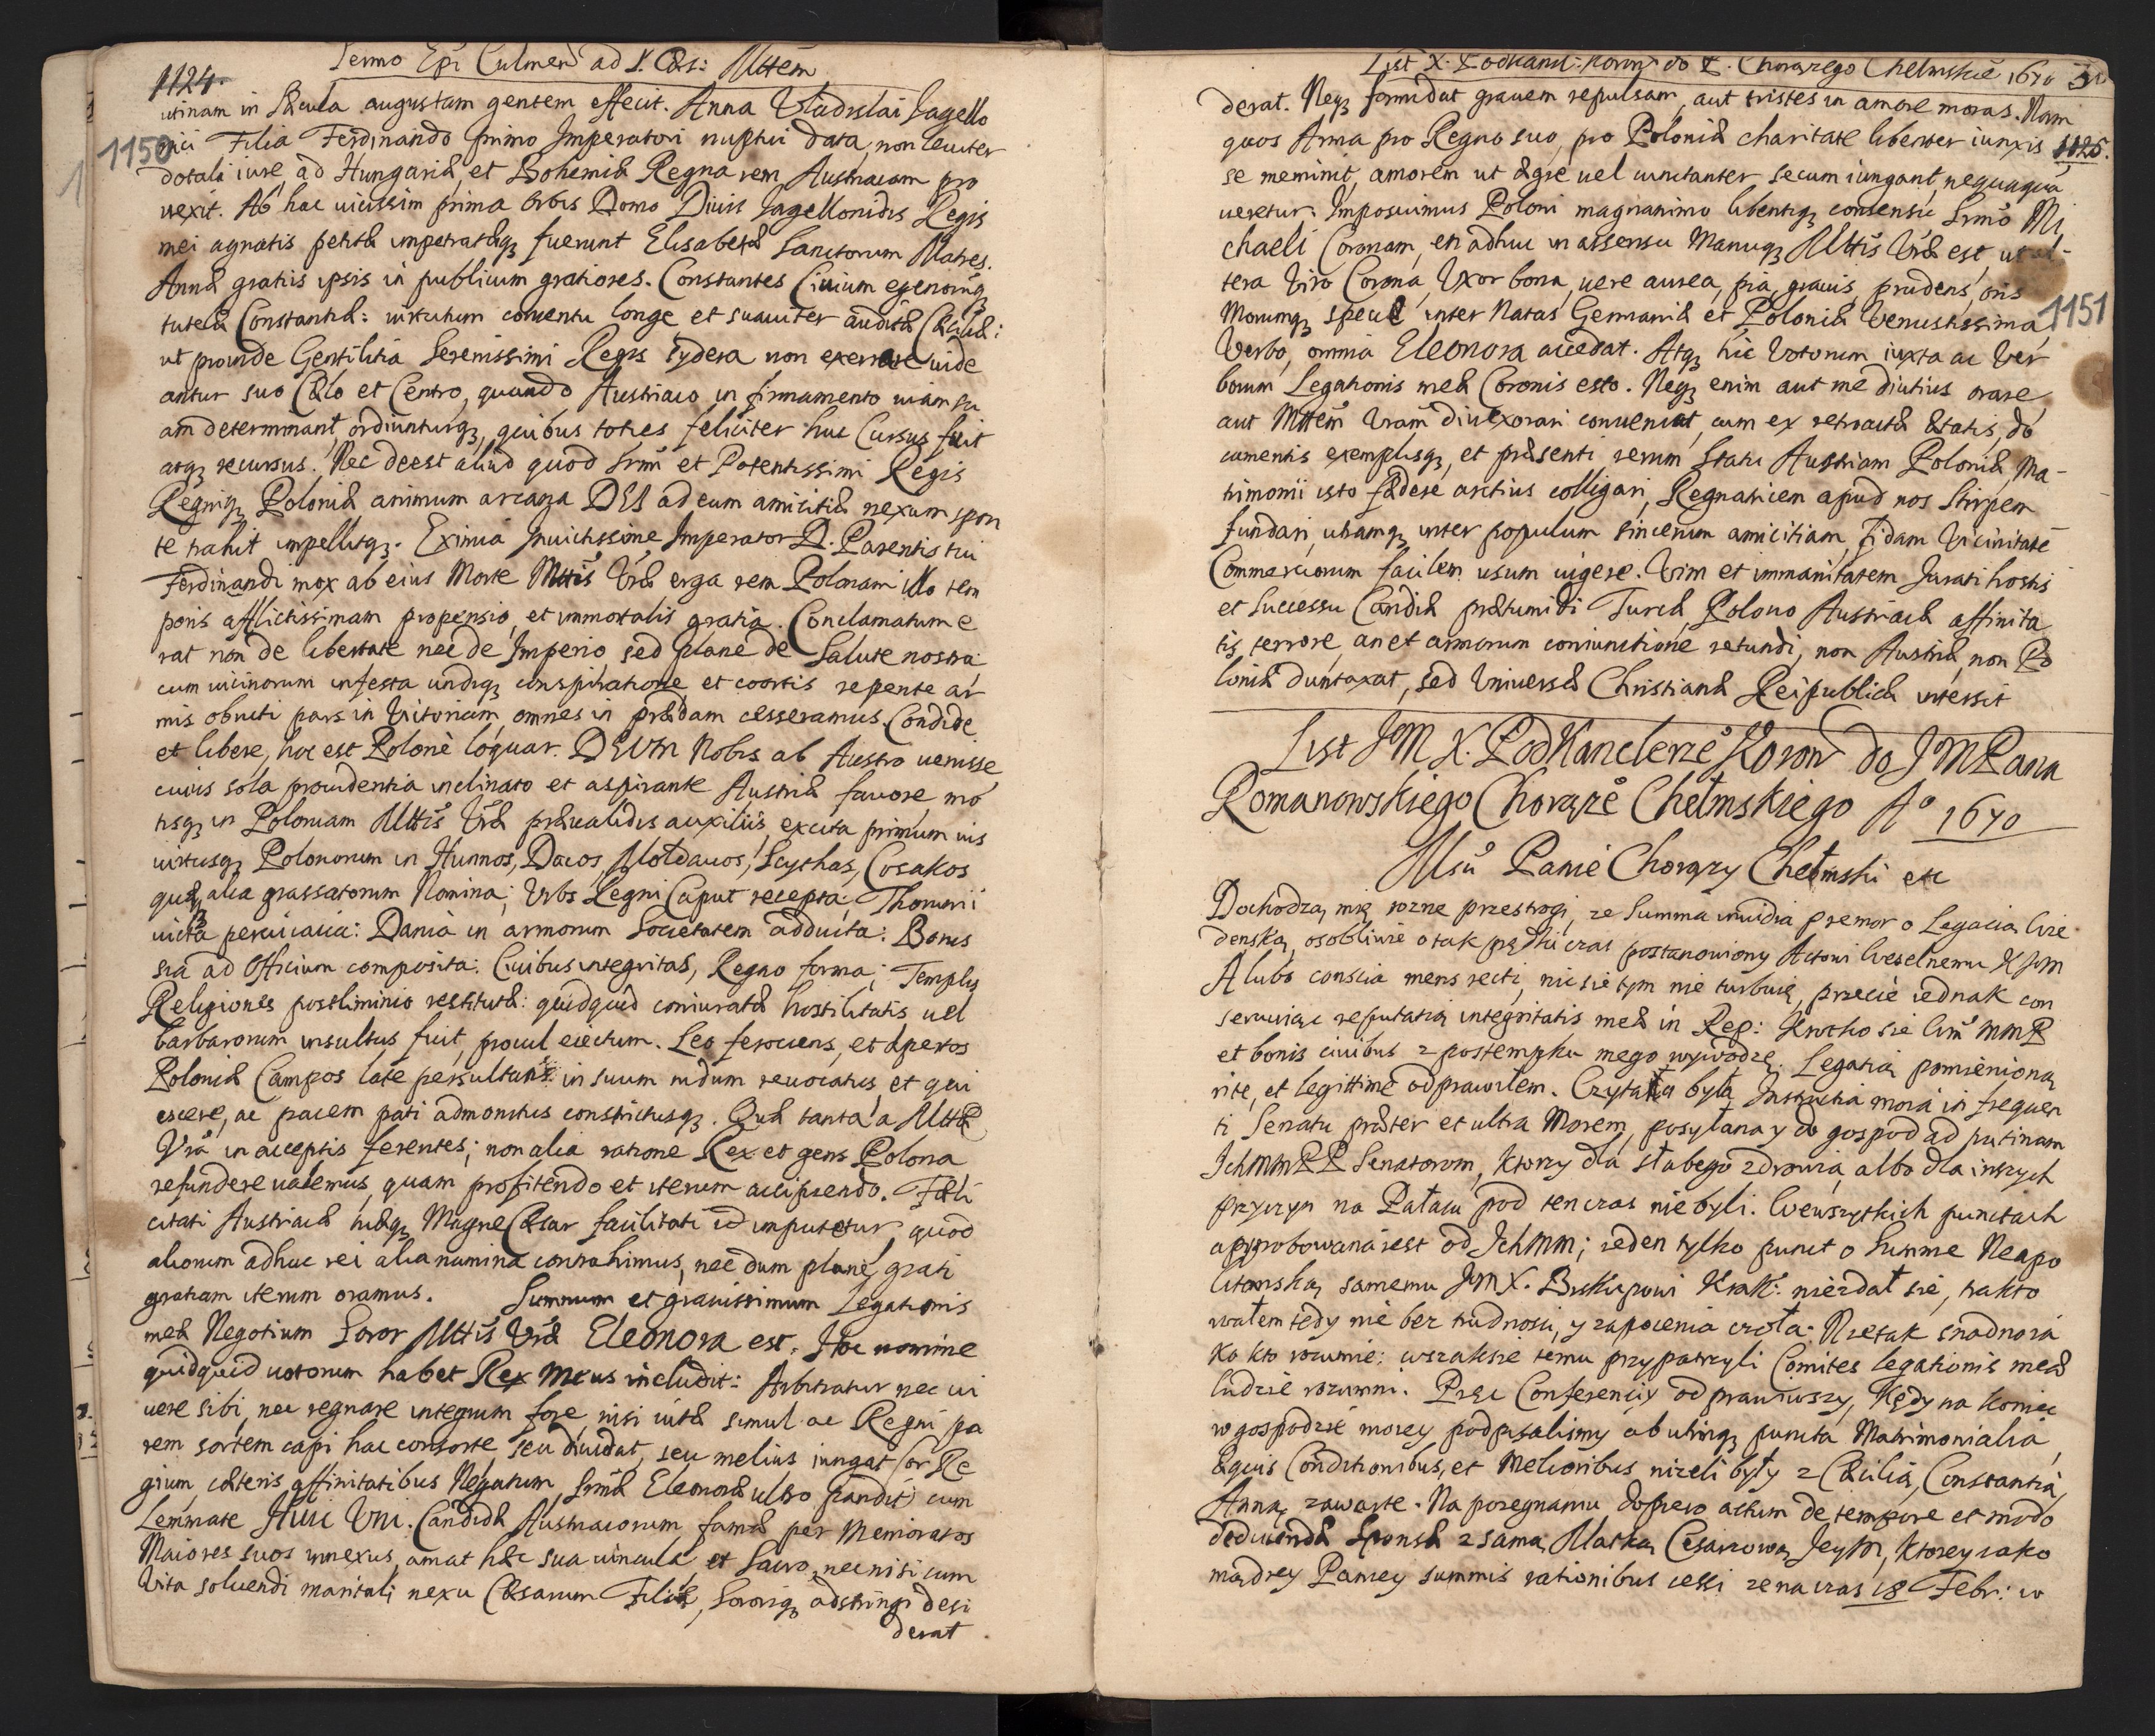 1124.
Sermo Epī Culmen ad S. Cæs: Mttem
utinam in Sæcula augustam gentem effecit. Anna Vladislai Jagello
1150
nici Filia Ferdinando primo Imperatori nuptui data, non leviter
dotali iure, ad Hungariæ et Bohemiæ Regna rem Austriacam pro
vexit. Ab hac vicissim prima Orbis Domo Divis Jagellonidis Regis
mei agnatis petitæ impetratæq3 fuerunt Elisabetæ Sanctorum Matres.
Annæ gratiis ipsis in publicum gratiores. Constantes Civium egenorūq3
tutelæ Constantiæ: virtutum conventu longe et suaviter auditæ Cæciliæ:
ut proinde Gentilitia Serenissimi Regis sydera non exerrare vide
antur suo Cælo et Centro, quando Austriaco in firmamento viam su
am determinant, ordiunturq3, quibus toties feliciter huc Cursus fuit
atq3 recursus. Nec deest aliud quod Srmi et Potentissimi Regis
Regniq3 Poloniæ animum arcana DEI ad eum amicitiæ nexum spon
te trahit impellitq3. Eximia Invictissime Imperator D. Parentis tui
Ferdinandi mox ab eius Morte Mttis Vræ erga rem Polonam illo tem
poris afflictissimam propensio, et immortalis gratia. Conclamatum e
rat non de libertate nec de Imperio, sed plane de Salute nostra
cum vicinorum infesta undiq3 conspiratione et coortis repente ar
mis obruti pars in Victoriam omnes in prædam cesseramus. Candide
et libere, hoc est Polonè loquar. DEUM Nobis ab Austro venisse
cuius sola providentia inclinato et aspirante Austriæ favore mo
tisq3 in Poloniam Mttis Vræ prævalidis auxiliis, excita primum vis
virtusq3 Polonorum in Hunnos, Dacos, Moldavos, Scythas, Cosakos
quæq3 alia grassatorum Nomina; Urbs Regni Caput recepta; Thorunii
victa pervicacia: Dania in armorum Societatem adducta: Borus
sia ad Officium composita: Civibus integritas, Regno forma; Templis
Religiones postliminio restitutæ: quidquid coniuratæ hostilitatis vel
barbarorum insultus fuit, procul eiectum. Leo ferociens, et apertos
Poloniæ Campos late persultans in suum nidum revocatus et qui
escere, ac pacem pati admonitus constrictusq3. Quæ tanta a Mtte
Vrā in acceptis ferentes; non alia ratione Rex et gens Polona
refundere valemus, quam profitendo et iterum accipiendo. Fæli
citati Austriacæ tuæq3 Magne Cæsar facilitati id imputetur, quod
aliorum adhuc rei alia numina contrahimus, nec dum plane grati
gratiam iterum oramus. Summum et gravissimum Legationis
meæ Negotium Soror Mttis Vræ Eleonora est. Hoc nomine
quidquid votorum habet Rex Meus includit: Arbitratur nec vi
vere sibi, nec regnare integrum fore, nisi vitæ simul ac Regni pa
rem sortem capi hac consorte, seu dividat, seu melius iungat Cor Re
gium cæteris affinitatibus Negatum, Srmæ Eleonoræ ultro pandit cum
Lemmate Huic Uni. Candidæ Austriacorum famæ per Memoratos
Maiores suos innexus, amat hæc sua vincula et Sacro, nec nisi cum
Vita solvendi maritali nexu Cæsarum Filiæ, Sororiq3 adstringi desi
derat
List X. Podkancl: Koron do P. Chorązego Chelmskie 1670
derat. Neq3 formidat gravem repulsam, aut tristes in amore moras. Nam
quos Arma pro Regno suo, pro Poloniæ charitate libenter iunxis 1125.
se meminit, amorem ut ægre vel cunctanter secum iungant, nequaquā
veretur. Imposuimus Poloni magnanimo libentiq3 consensu Srmo Mi
chaeli Coronam, en adhuc in assensu Manuq3 Mttis Vræ est, ut al-
tera Viro Corona, Uxor bona, vere aurea, pia, gravis, prudens, oris
Morumq3 specie inter Natas Germaniæ et Poloniæ Venustissima, 1151
Verbo, omnia Eleonora accedat. Atq3 hic Votorum iuxta ac Ver
borum Legationis meæ Coronis esto. Neq3 enim aut me diutius orare
aut Mttem Vram diu exorari conveniat, cum ex retroactæ ætatis, do
cumentis exemplisq3, et præsenti rerum Statu Austriam Poloniæ, Ma-
trimonii isto fædere arctius colligari, Regnatricem apud nos Stirpem
fundari, utramq3 inter populum sincerum amicitiam, fidam Vicinitatē
Commerciorum facilem usum vigere. Vim et immanitatem Jurati hostis
et Successu Candiæ prætumidi Turcæ, Polono Austriacæ affinita
tis terrore, an et armorum coniunctione retundi, non Austriæ, non Po
loniæ duntaxat, sed Universæ Christianæ Reipublicæ intersit
List JM X. Podkanclerze° Koron do JMPana
Romanowskiego Chorąze° Chełmskiego A° 1670
Msci Panie Chorązy Chełmski etc
Dochodzą mię rozne przestrogi, ze Summa invidia premor o Legacią Wie
denską, osobliwie o tak prętki czas postanowiony Actowi Weselnemu KJM
A lubo conscia mens recti, nic sie tym nie turbuię, przecie iednak con
serwuiąc reputatią integritatis meæ in Rep: Krotko sie Wm MMP
et bonis civibus z postempku mego wywodzę. Legatią pomienioną
rite, et legittime odprawiłem. Czytana była Instructia moia in frequen
ti Senatu præter et ultra Morem, posyłana y do gospod ad putinam
JchMMPP Senatorom, ktorzy dla słabego zdrowia, albo dla inszych
przyczyn na Pałacu pod ten czas nie byli. We wszytkich punctach
approbowana iest od JchMM; ieden tylko punct o Summe Neapo
litańską samemu JM X. Biskupowi Krak: nie zdał sie, trakto
wałem tedy nie bez trudnosci, y zapocenia czoła: Nie tak snadno ia
ko kto rozumie: wszakzie temu przypatrzyli Comites legationis meæ
ludzie rozumni. Pięć Conferenciy odprawiwszy, kędy na koniec
w gospodzie moiey podpisalismy ab utrinq3 puncta Matrimonialia
æquis Conditionibus, et Melioribus nizeli były z Cæcilią, Constantią,
Anną zawarte. Na pozegnaniu dopiero actum de tempore et modo
deducendæ Sponsæ z samą Matką Cesarzową JeyM, ktorey iako
mądrey Paniey summis rationibus cessi ze na czas 18 Febr: w